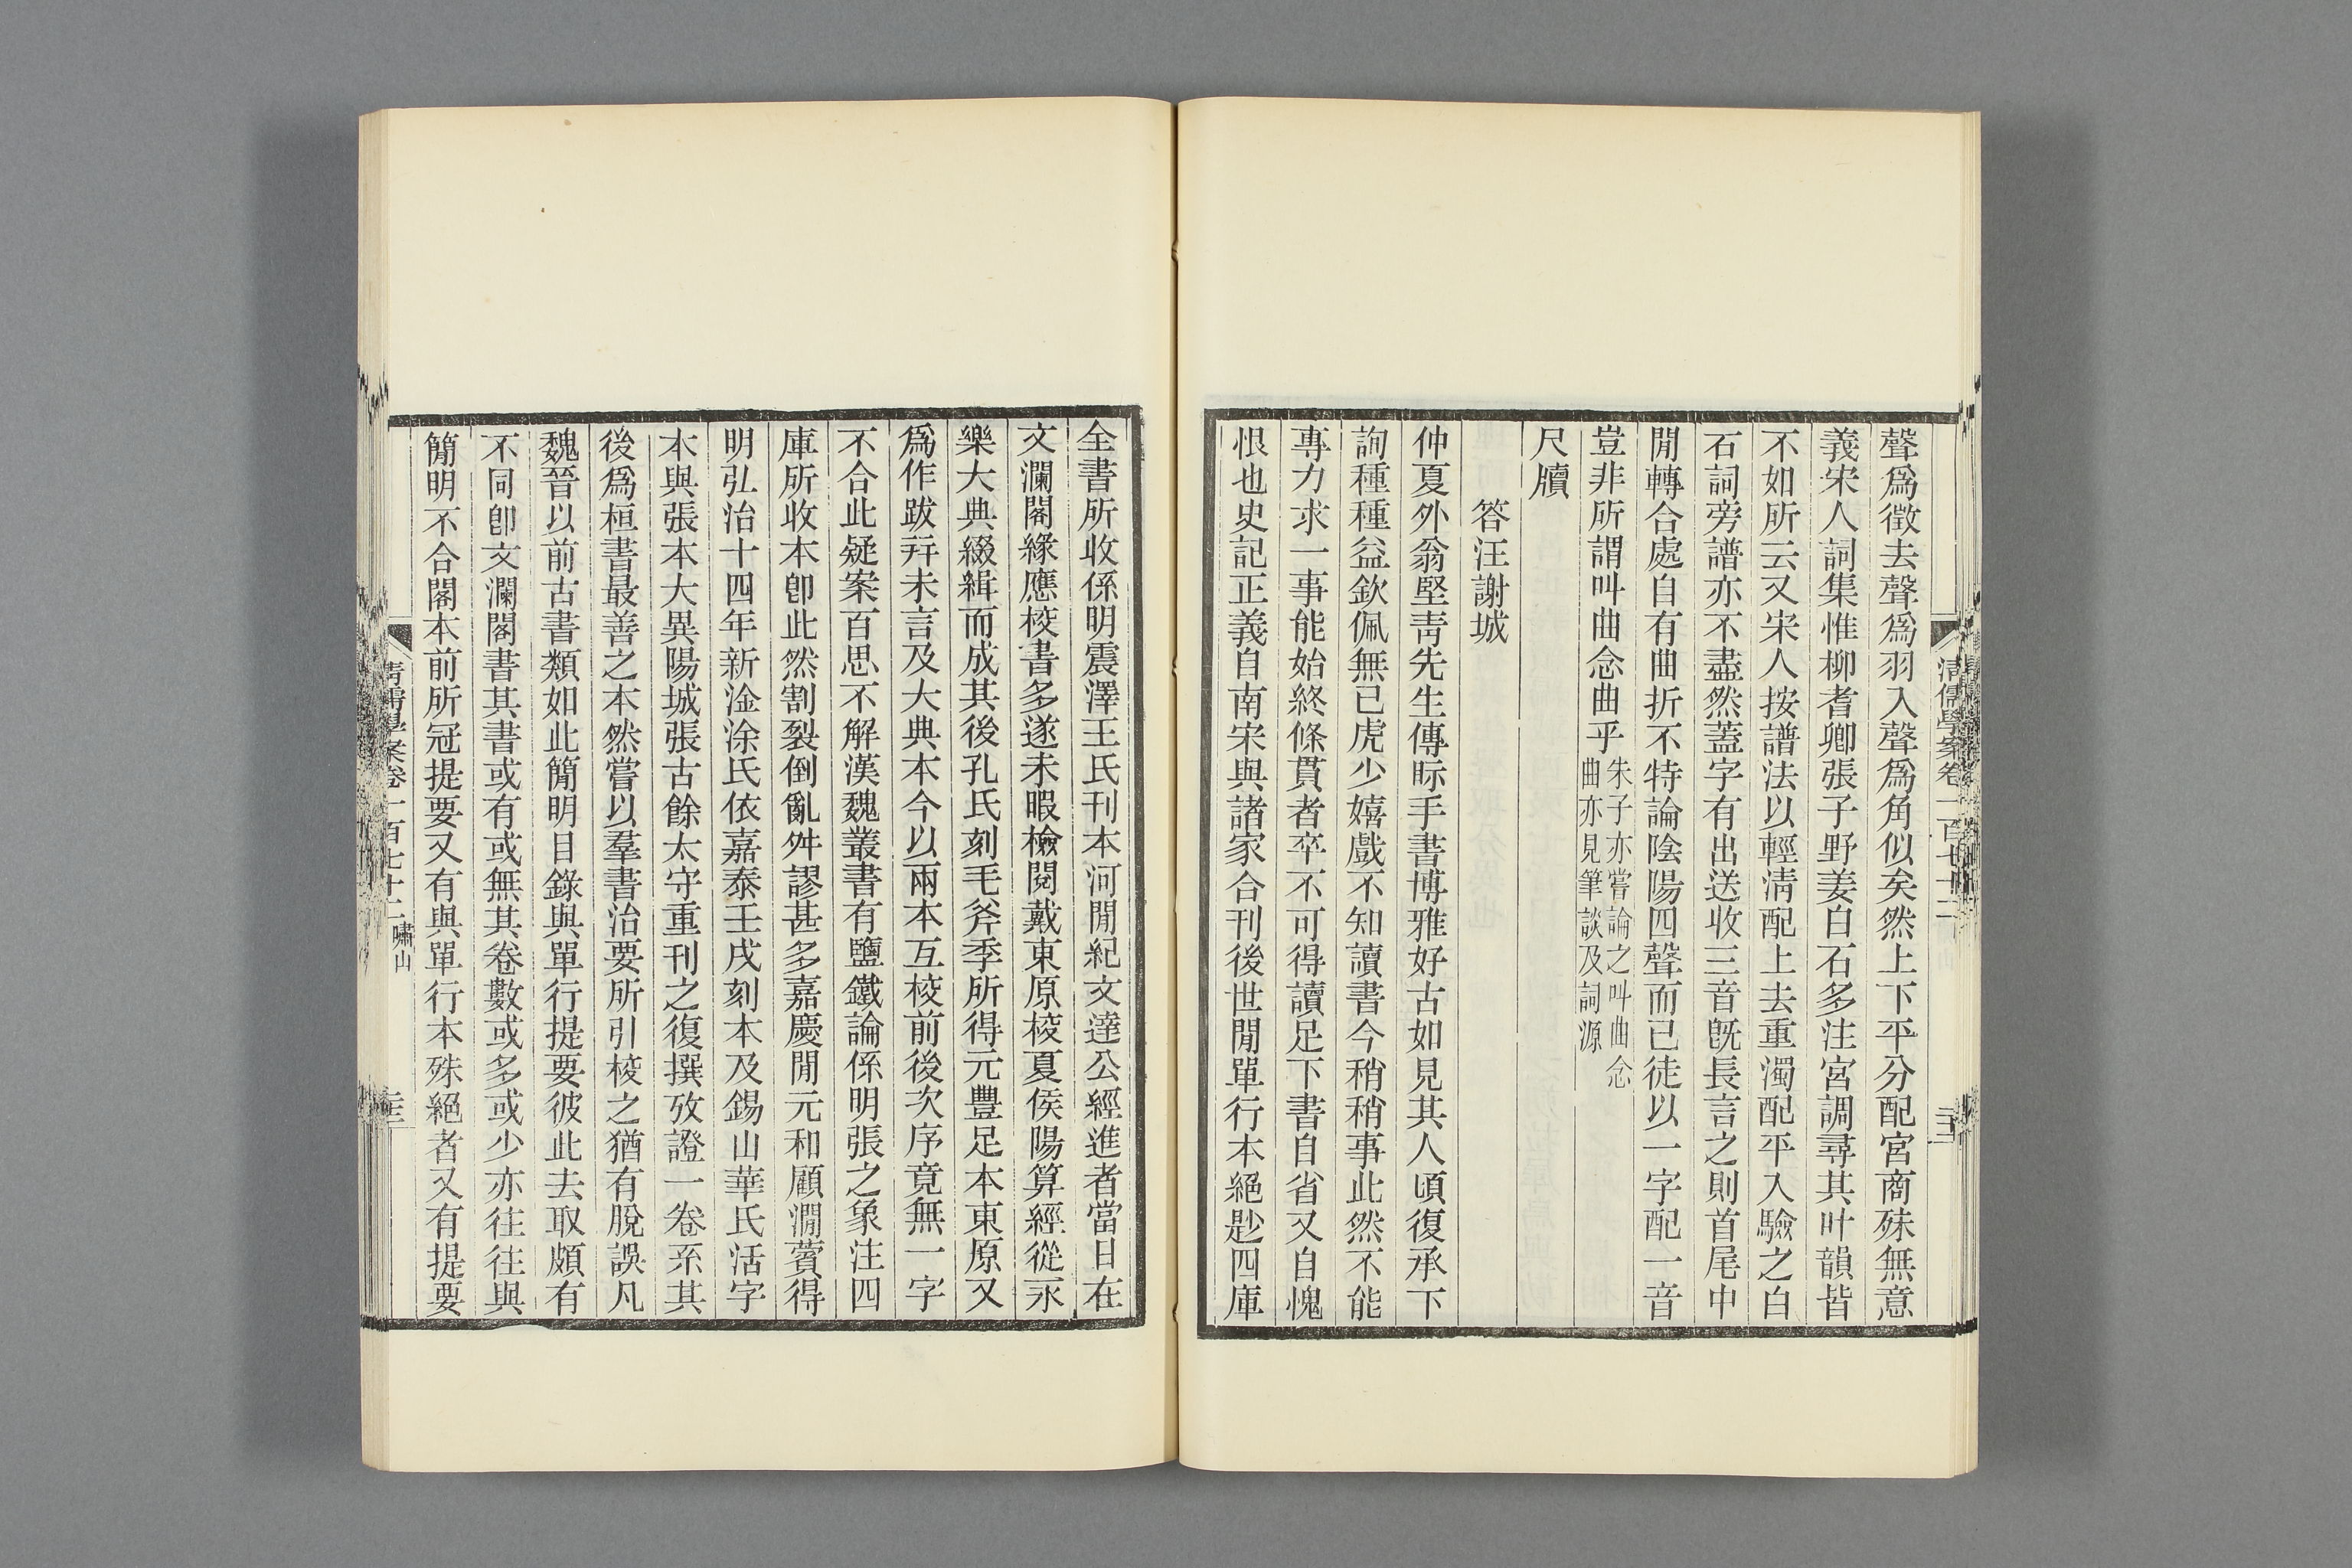 聲爲徵去聲爲羽入聲爲角似矣然上下平分配宮商殊無意
義宋人詞集惟柳耆卿張子野姜白石多注宮調尋其叶韻皆
不如所云又宋人按譜法以輕淸配上去重濁配平入驗之白
石詞旁譜亦不盡然蓋字有出送收三音旣長言之則首尾中
閒轉合處自有曲折不特論陰陽四聲而已徒以一字配一音
豈非所謂叫曲念曲乎
朱子亦嘗論之叫曲念
曲亦見筆談及詞源
尺牘
答汪謝城
仲夏外翁堅靑先生傳眎手書博雅好古如見其人頃復承下
詢種種益欽佩無已虎少嬉戲不知讀書今稍稍事此然不能
專力求一事能始終條貫者卒不可得讀足下書自省又自愧
恨也史記正義自南宋與諸家合刊後世閒單行本絕尟四庫
全書所收係明震澤王氏刊本河閒紀文達公經進者當日在
文瀾閣緣應校書多遂未暇檢閱戴東原校夏侯陽算經從永
樂大典綴緝而成其後孔氏刻毛斧季所得元豐足本東原又
爲作跋竝未言及大典本今以兩本互校前後次序竟無一字
不合此疑案百思不解漢魏叢書有鹽鐵論係明張之象注四
庫所收本卽此然割裂倒亂舛謬甚多嘉慶閒元和顧澗薲得
明弘治十四年新淦涂氏依嘉泰壬戌刻本及錫山華氏活字
本與張本大異陽城張古餘太守重刊之復撰攷證一卷系其
後爲桓書最善之本然嘗以羣書治要所引校之猶有脫誤凡
魏晉以前古書類如此簡明目錄與單行提要彼此去取頗有
不同卽文瀾閣書其書或有或無其卷數或多或少亦往往與
簡明不合閣本前所冠提要又有與單行本殊絕者又有提要
清儒學案卷一百七十二 嘯山